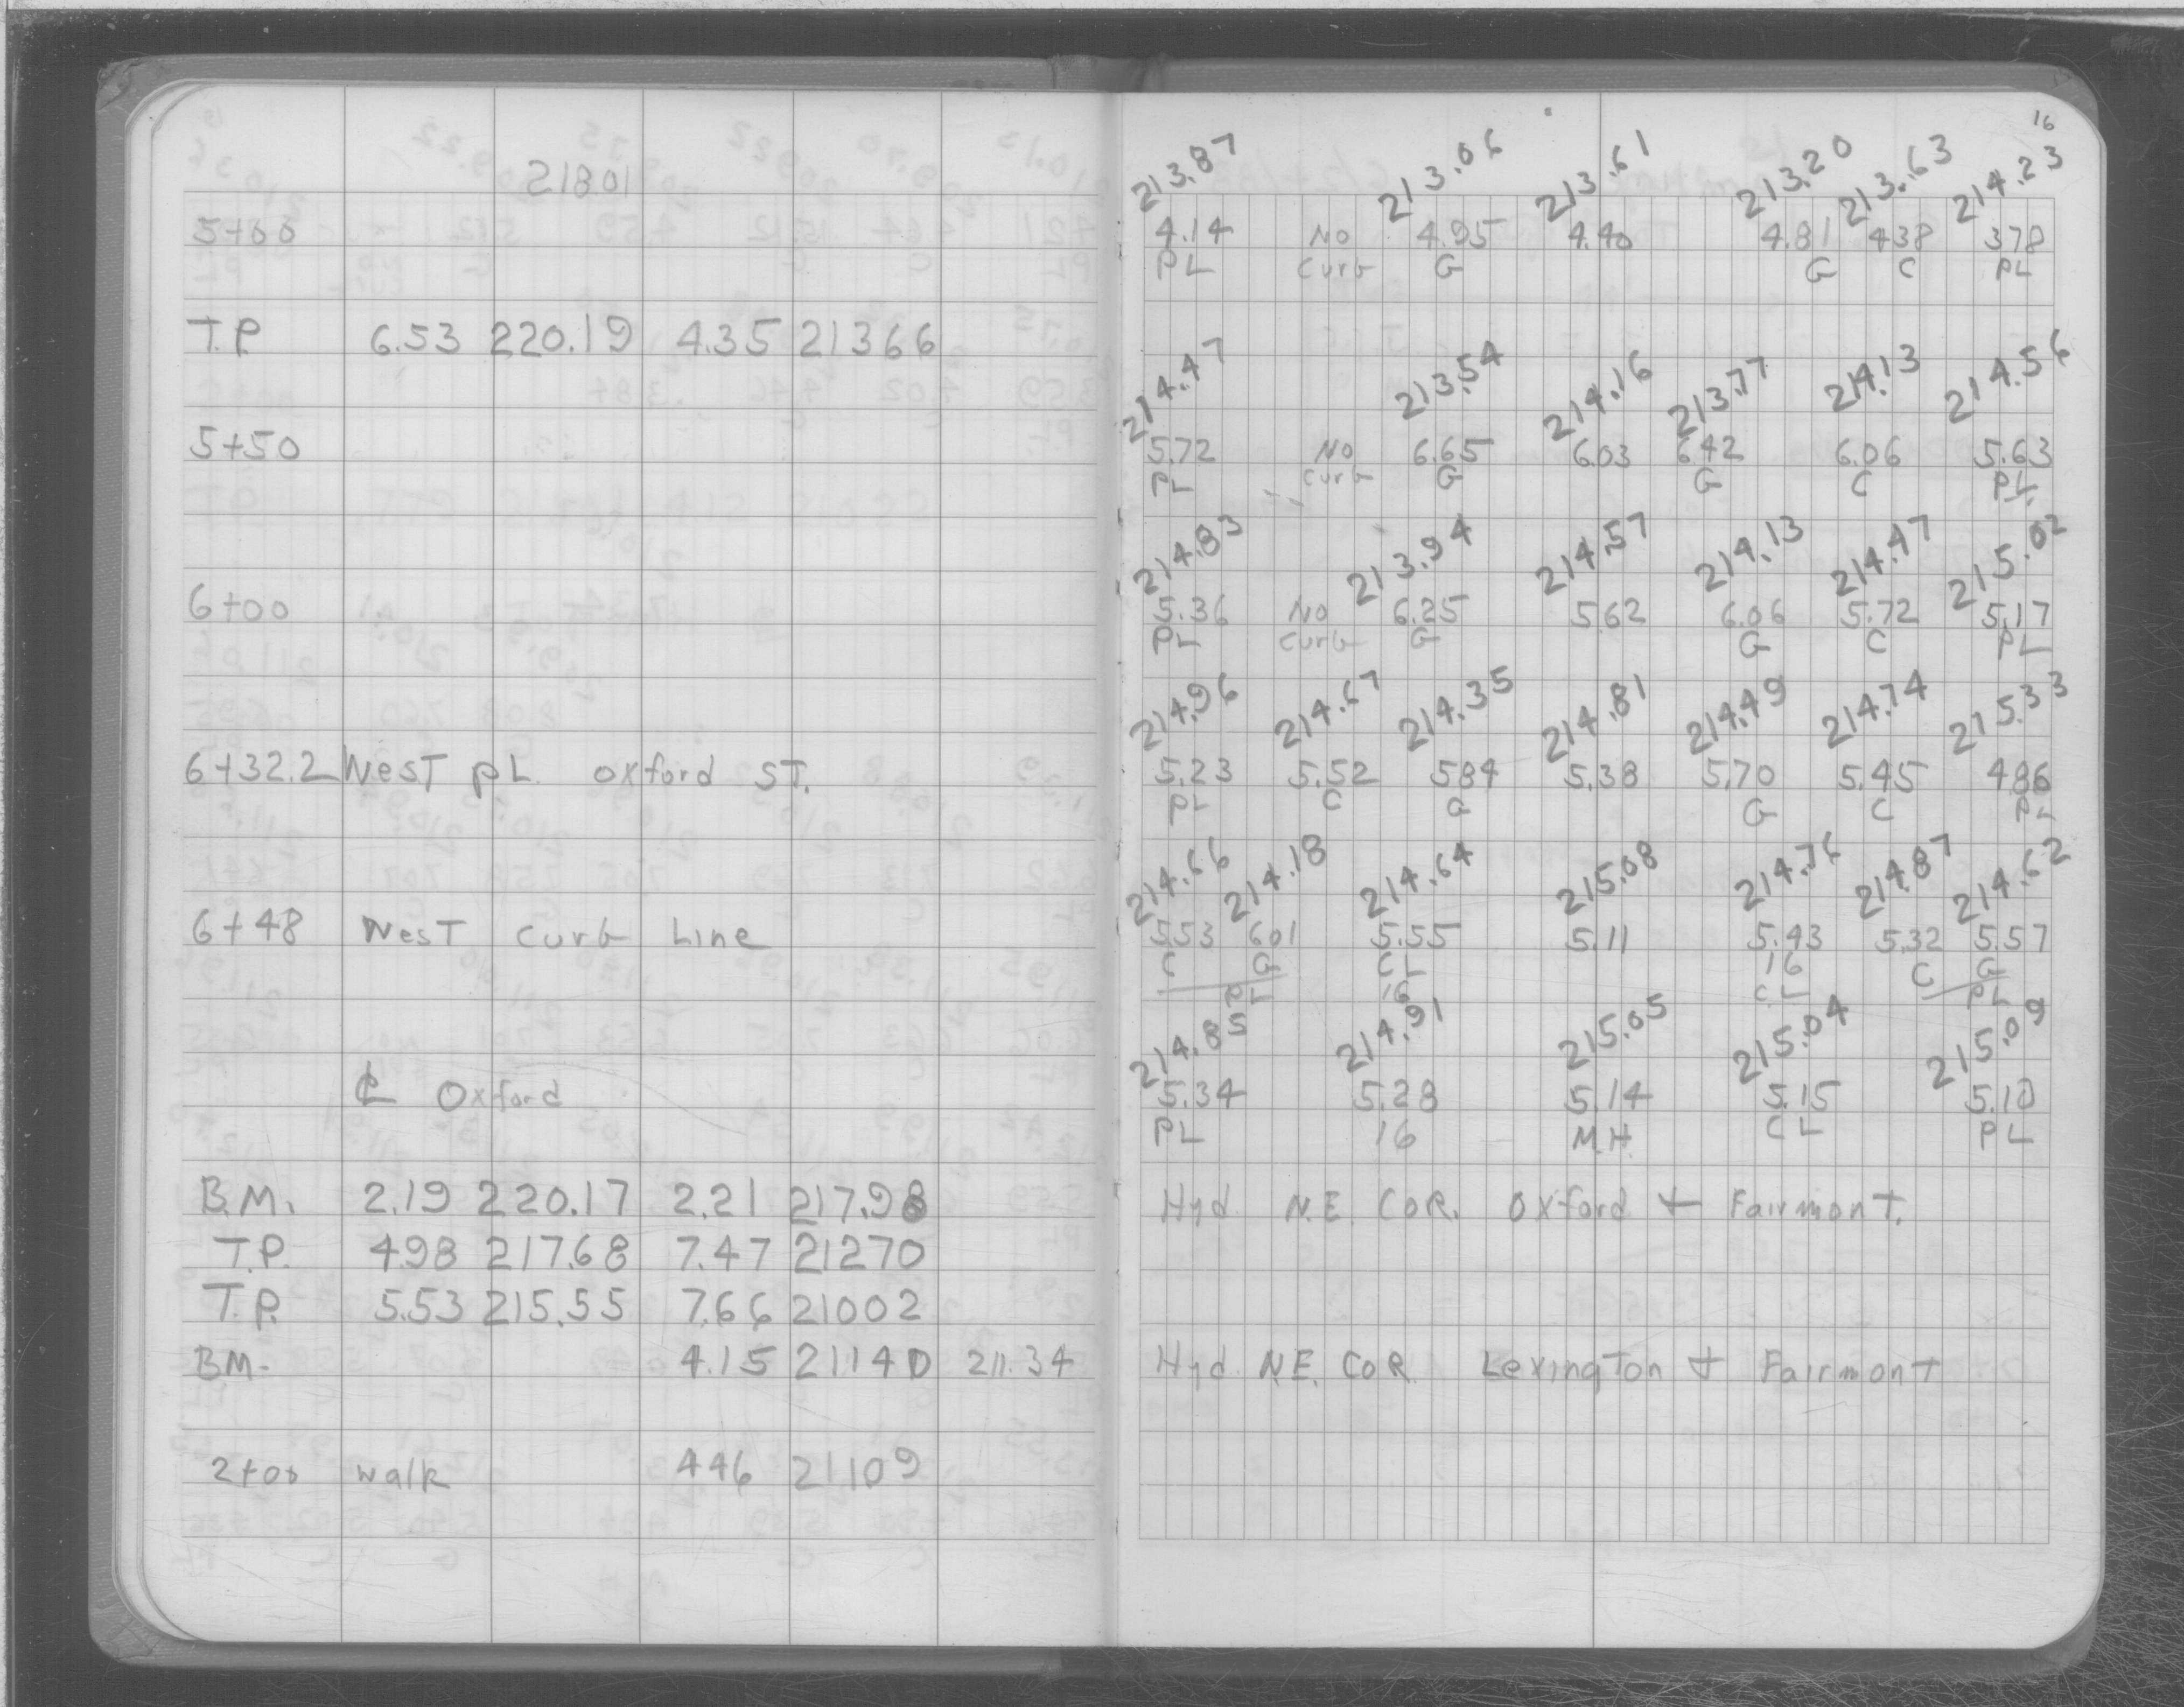 218.01
5+00
T.P. 6.53 220.19 4.35 213 66
5+50
6+00
6+32.2 West PL. Oxford ST.
6+48 West Curb Line
℄ Oxford
B.M. 2.19 220.17 2.21 217.98
T.P. 4.98 217.68 7.47 212 70
T.P. 5.53 215.55 7.66 210 02
B.M. 4.15 211 40 211.34
2+00 walk 4.46 211 09
16
213.87 213.06 213.61 213.20 213.63 214.23
4.14 No 4.95 4.40 4.81 4.38 3.78
PL Curb G G C PL
214.47 213.54 214.16 213.77 214.13 214.56
5.72 No 6.65 6.03 6.42 6.06 5.63
PL Curb G G C PL
214.83 213.94 214.57 214.13 214.47 215.02
5.36 No 6.25 5.62 6.06 5.72 5.17
PL Curb G G C PL
214.96 214.67 214.35 214.81 214.49 214.74 215.33
5.23 5.52 5.84 5.38 5.70 5.45 4.86
PL C G G C PL
214.66 214.18 214.64 215.08 214.76 214.87 214.62
5.53 6.01 5.55 5.11 5.43 5.32 5.57
C G CL 16 C G
PL 16 CL PL
214.85 214.91 215.05 215.04 215.09
5.34 5.28 5.14 5.15 5.10
PL 16 M.H. CL PL
Hyd. N.E. COR. Oxford + Fairmont.
Hyd. N.E. COR. Lexington + Fairmont